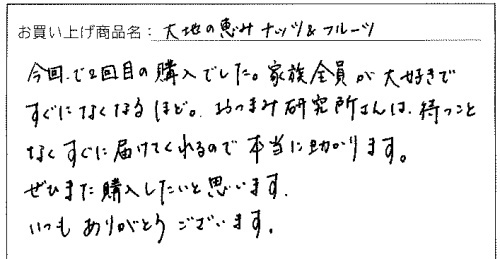 お買い上げ商品名： 大地の恵みナッツ&フルーツ
今回で2回目の購入でした。家族全員が大好きで
すぐになくなるほど。おつまみ研究所さんは、待つこと
なくすぐに届けてくれるので本当に助かります。
ぜひまた購入したいと思います。
いつもありがとうございます。